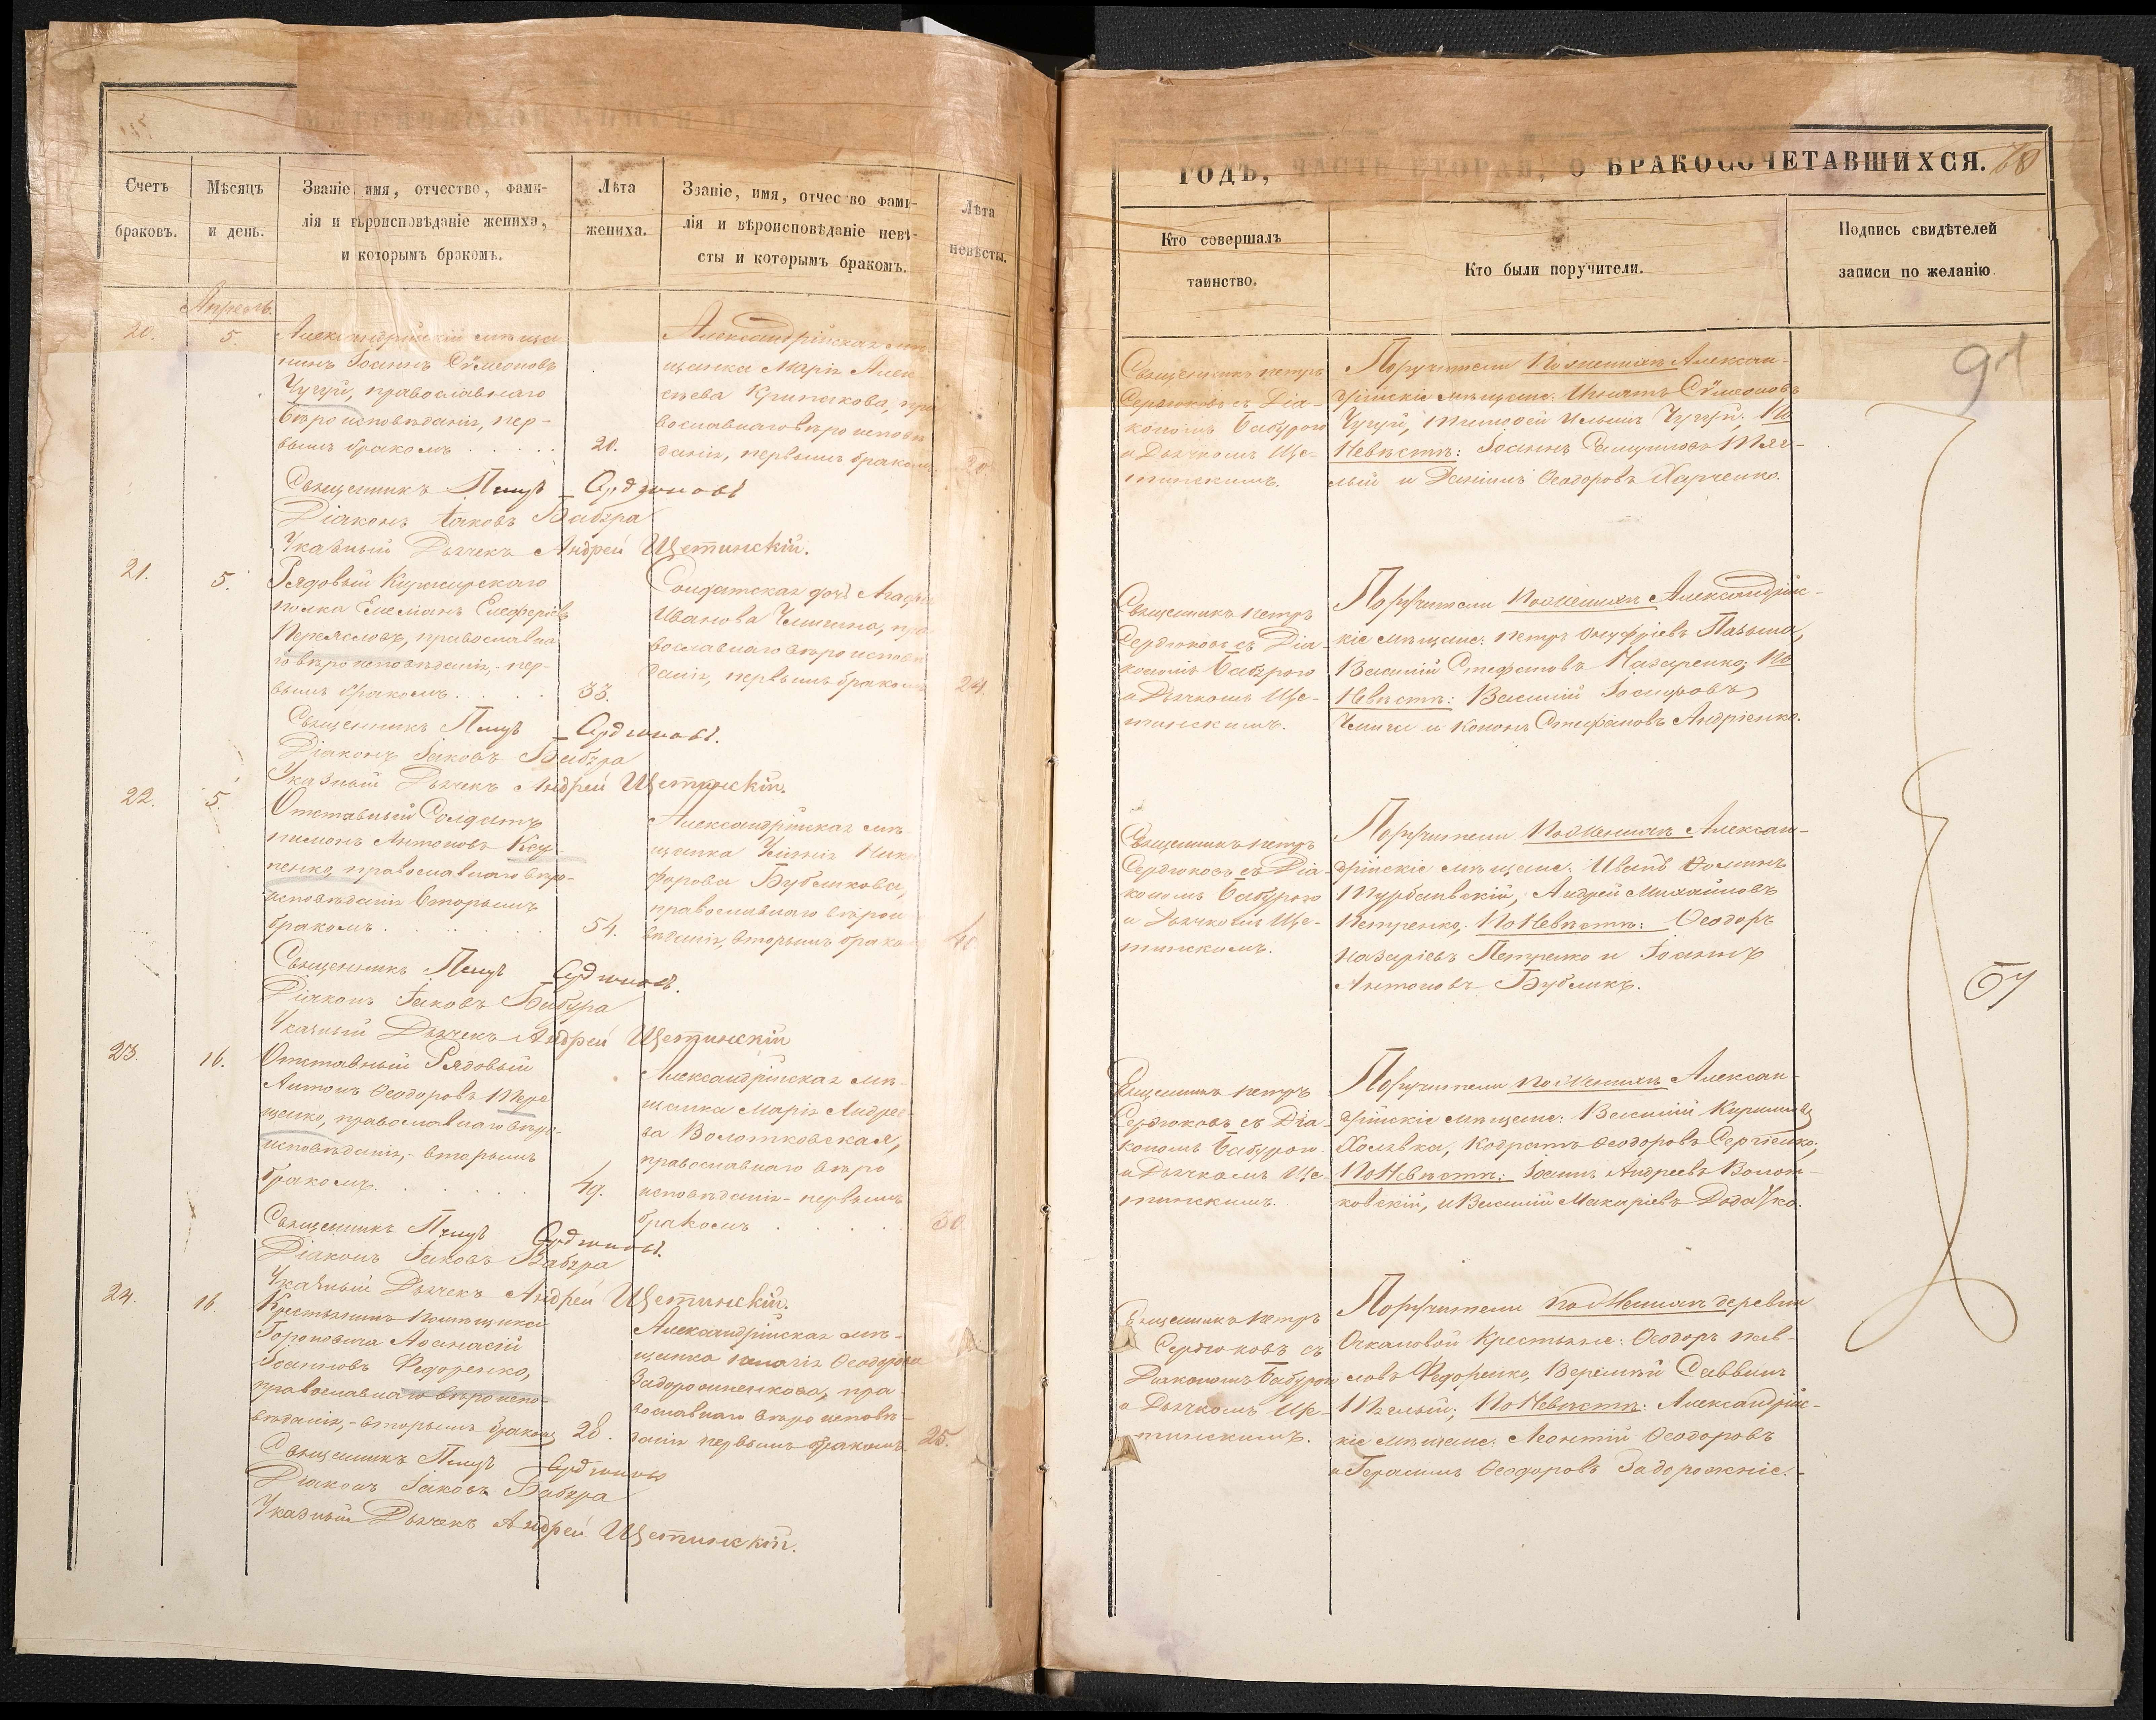 Счетъ
браковъ.
Мѣсяцъ
и день.
Званіе, имя, отчество, фами-
лія и вѣроисповѣданіе жениха,
и которымъ бракомъ.
Лѣта
жениха.
Званіе, имя, отчество фами-
лія и вѣроисповѣданіе невѣ-
сты и которымъ бракомъ.
Лѣта
невѣсты.
Апрель.
20.
5.
Александрійскій мѣща
нинъ Іоаннъ Сѵмеоновъ
Чугуй, православнаго
вѣроисповѣданія, пер-
вымъ бракомъ
20.
Александрійская мѣ
щанка Марія Алек
сѣева Крипакова, пра
вославнаго вѣроисповѣ
данія, первымъ бракомъ
20
Священникъ Петръ Сердюковъ
Діаконъ Іаковъ Бабура
Указный Дьячекъ Андрей Щетинскій.
21.
5.
Рядовый
полка Емеліанъ Елеферіевъ
православна
го вѣроисповѣданія, пер-
вымъ бракомъ
33.
Солдатская дочь Агафія
Иванова пра
вославнаго вѣроисповѣ
данія, первымъ бракомъ
24.
Священникъ Петръ Сердюковъ.
Діаконъ Іаковъ Бабура
Указный Дьячекъ Андрей Щетинскій.
22.
5.
Отставный Солдатъ
Антоновъ
пенко, православнаго вѣро-
исповѣданія вторымъ
бракомъ
54.
Александрійская мѣ-
щанка Ники
форова Бубликова,
православнаго вѣроис
вѣданія, вторымъ бракомъ
40.
Священникъ Петръ Сердюковъ.
Діаконъ Іаковъ Бабура
Указный Дьячекъ Андрей Щетинскій
23.
16.
Отставный Рядовый
Антонъ Ѳеодоровъ Тере
щенко, православнаго вѣро-
исповѣданія, - вторымъ
бракомъ.
49.
Александрійская мѣ-
щанка Марія Андрее-
ва Волотковская,
православнаго вѣро
исповѣданія - первымъ
бракомъ
30.
Священникъ Петръ Сердюковъ.
Діаконъ Іаковъ Бабура
Указный Дьячекъ Андрей Щетинскій.
24.
16.
Крестьянинъ помѣщика
Гороновича Аѳанасій
Іоанновъ Федоренко,
православнаго вѣроиспо-
вѣданія, - вторымъ бракомъ
28.
Александрійская мѣ-
щанка Пелагія Ѳеодорова
Задорожненкова, пра-
вославнаго вѣроисповѣ-
данія первымъ бракомъ
25.
Священникъ Петръ Сердюковъ
Діаконъ Іаковъ Бабура
Указный Дьячекъ Андрей Щетинскій.
ГОДЪ, ЧАСТЬ ВТОРАЯ, О БРАКОСОЧЕТАВШИХСЯ.
Кто совершалъ
таинство.
Кто были поручители.
Подпись свидѣтелей
записи по желанію
91
Священникъ Петръ
Сердюковъ съ Діа-
кономъ Бабурою
и Дьячкомъ Ще-
тинскимъ.
Поручители по женихѣ Алексан-
дрійскіе мѣщане: Игнатъ Сѵмеоновъ
Чугуй, Тимоѳей Ильинъ Чугуй; по
Невѣстѣ: Іоаннъ Тяг-
лый и Даніилъ Ѳеодоровъ Харченко.
Священникъ Петръ
Сердюковъ съ Діа-
кономъ Бабурою
и Дьячкомъ Ще-
тинскимъ.
Поручители по женихѣ Александрійс-
кіе мѣщане: Петръ Онуфріевъ
Василій Стефановъ Назаренко; по
Невѣстѣ: Василій Іосифовъ
и Кононъ Стефановъ Андріенко.
Священникъ Петръ
Сердюковъ съ Діа-
кономъ Бабурою
и Дьячкомъ Ще-
тинскимъ.
Поручители по женихѣ Алексан-
дрійскіе мѣщане: Иванъ Ѳоминъ
Турбаивскій, Андрей Михайловъ
Петренко; По Невѣстѣ: Ѳеодоръ
Назаріевъ Петренко и Іоаннъ
Антоновъ Бубликъ.
Священникъ Петръ
Сердюковъ съ Діа-
кономъ Бабурою
и Дьячкомъ Ще-
тинскимъ.
Поручители по женихѣ Алексан-
дрійскіе мѣщане: Василій Кирилловъ
Кодратъ Ѳеодоровъ Сергіенко;
По Невѣстѣ: Іоаннъ Андреевъ Волот-
ковскій, и Василій Макаріевъ
Священникъ Петръ
Сердюковъ съ
Діакономъ Бабурою
и Дьячкомъ Ще-
тинскимъ.
Поручители по женихѣ деревни
Крестьяне: Ѳеодоръ Пав-
ловъ Федоренко, Веремѣй Саввинъ
По Невѣстѣ: Александрійс-
кіе мѣщане: Леонтій Ѳеодоровъ
и Герасимъ Ѳеодоровъ Задорожніе.